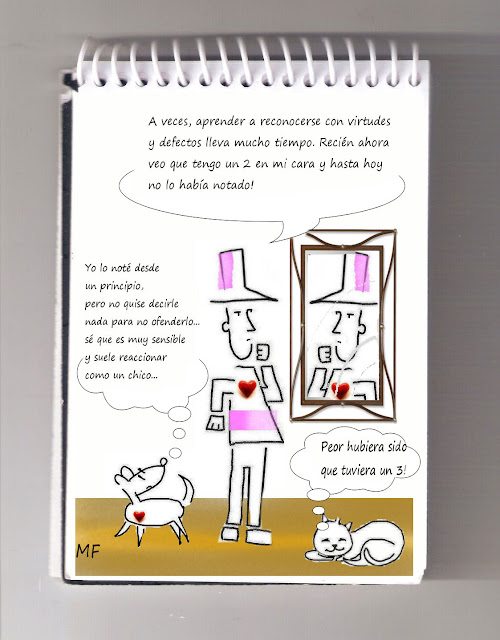 A veces, aprender a reconocerse con virtudes
y defectos lleva mucho tiempo. Recién ahora
veo que tengo un 2 en mi cara y hasta hoy
no lo había notado!
Yo lo noté desde
un principio,
pero no quise decirle
nada para no ofenderlo...
sé que es muy sensible
y suele reaccionar
como un chico...
Peor hubiera sido
que tuviera un 3!
MF